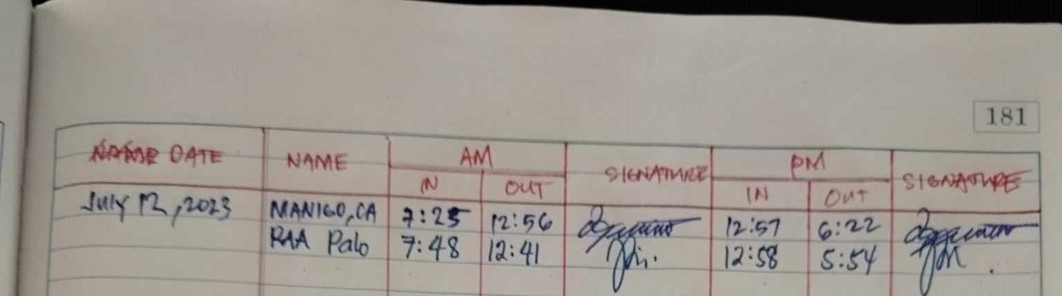 181
NAME DATE NAME AM SIGNATURE PM SIGNATURE
IN OUT IN OUT
July 12, 2023 MANIGO, CA 7:25 12:56 12:57 6:22
RAA Palo 7:48 12:41 12:58 5:54